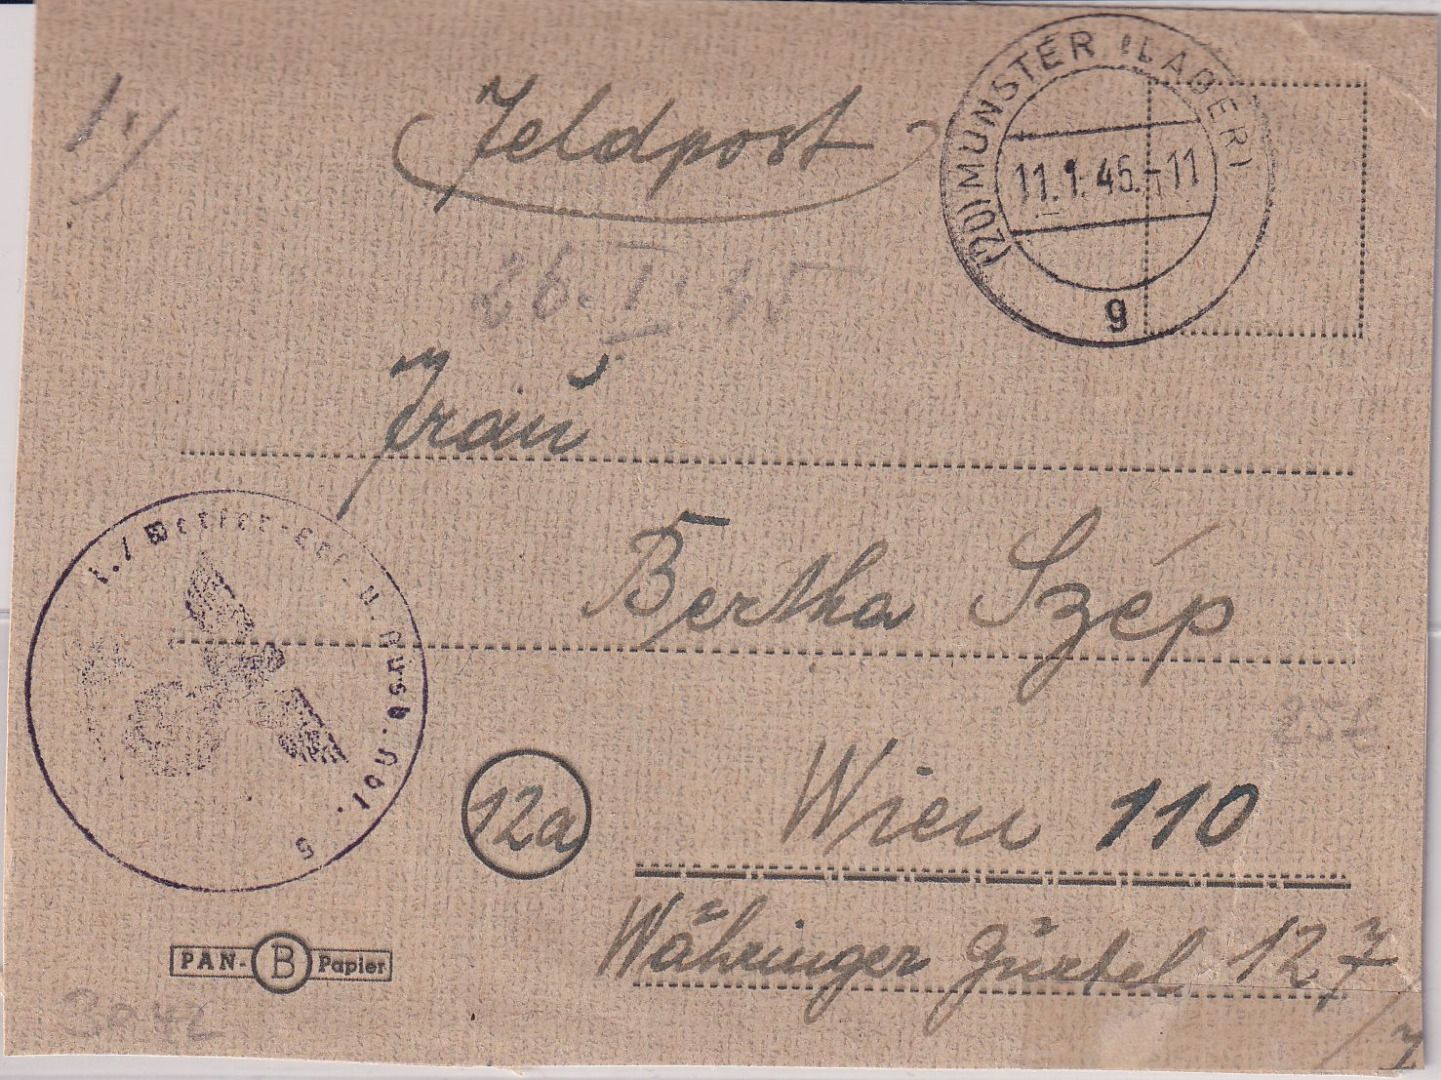 Feldpost
(20) MUNSTER (LAGER)
11.1.45.-11
g
26. I. 45
Frau
Bertha Szép
1./Werfer-Ers.-u. Ausb. Abt. 5
257
12a
Wien 110
Währinger Gürtel 127
/7
PAN- B Papier